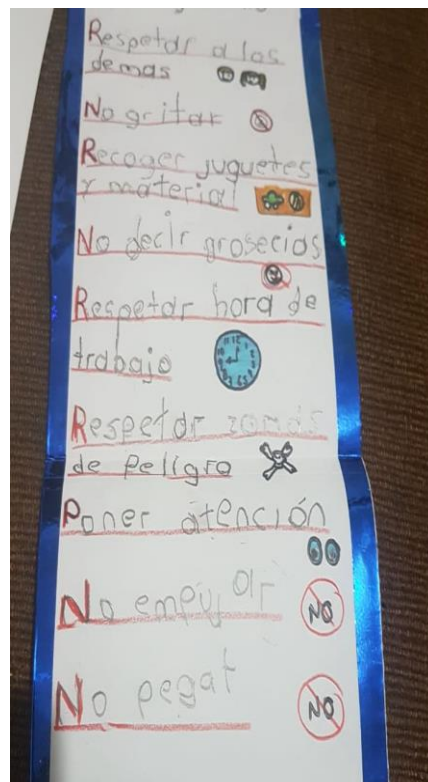 Respetar a los
demas
No gritar
Recoger juguetes
y material
No decir groserias
Respetar hora de
trabajo
Respetar zonas
de peligro
Poner atención
No empujar
NO
No pegar
NO